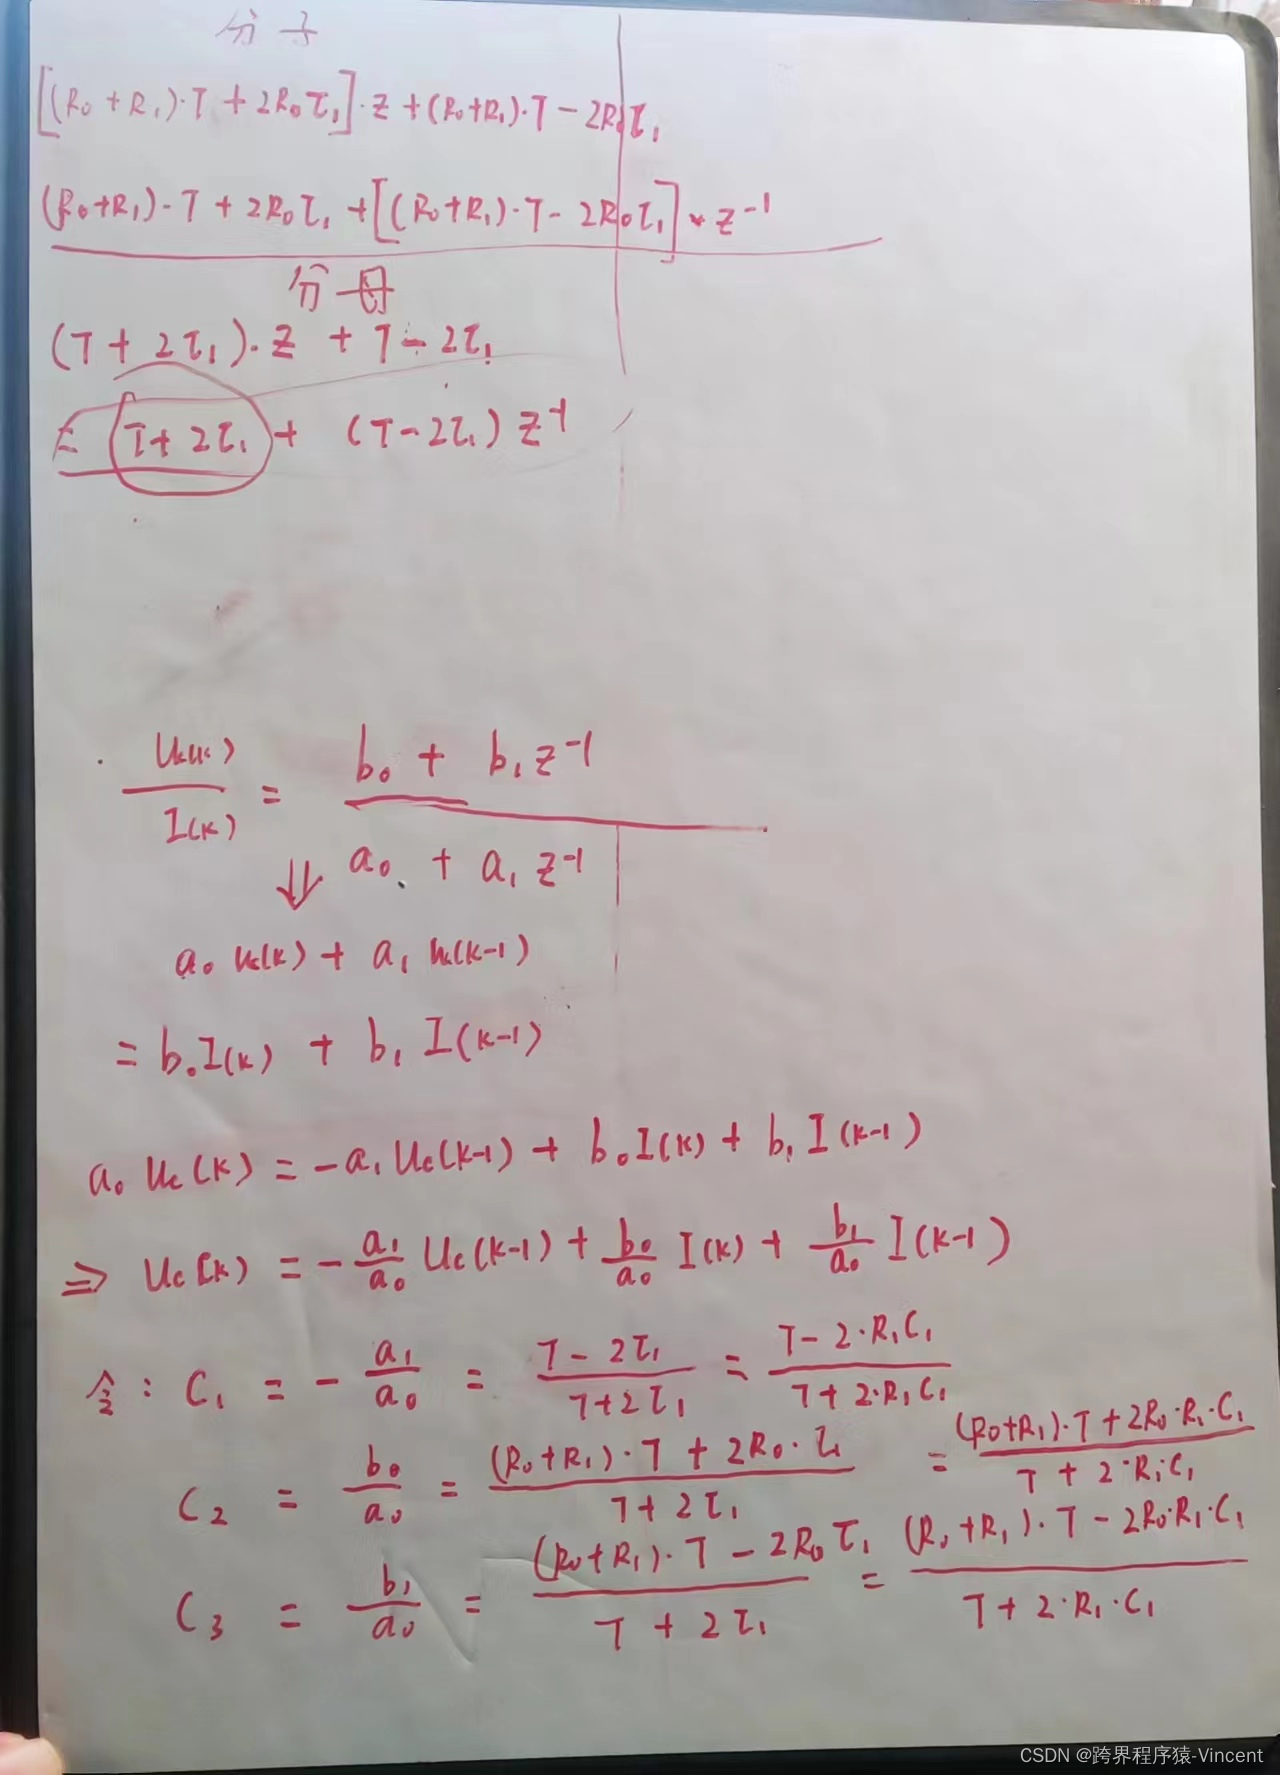 分子
[(R₀+R₁)·T+2R₀τ₁]·z+(R₀+R₁)·T-2R₀τ₁
(R₀+R₁)·T+2R₀τ₁+[(R₀+R₁)·T-2R₀τ₁]*z⁻¹
分母
(T+2τ₁)·z+T-2τ₁
= T+2τ₁+(T-2τ₁)z⁻¹
Uc(k)/I(k) = (b₀+b₁z⁻¹)/(a₀+a₁z⁻¹)
⇓
a₀Uc(k)+a₁Uc(k-1)
=b₀I(k)+b₁I(k-1)
a₀Uc(k)=-a₁Uc(k-1)+b₀I(k)+b₁I(k-1)
⇒ Uc(k)=-a₁/a₀ Uc(k-1)+b₀/a₀ I(k)+b₁/a₀ I(k-1)
令: C₁=-a₁/a₀=(T-2τ₁)/(T+2τ₁)=(T-2·R₁C₁)/(T+2·R₁C₁)
C₂=b₀/a₀=((R₀+R₁)·T+2R₀·τ₁)/(T+2τ₁)=((R₀+R₁)·T+2R₀·R₁·C₁)/(T+2·R₁·C₁)
C₃=b₁/a₀=((R₀+R₁)·T-2R₀τ₁)/(T+2τ₁)=((R₀+R₁)·T-2R₀·R₁·C₁)/(T+2·R₁·C₁)
CSDN @跨界程序猿-Vincent